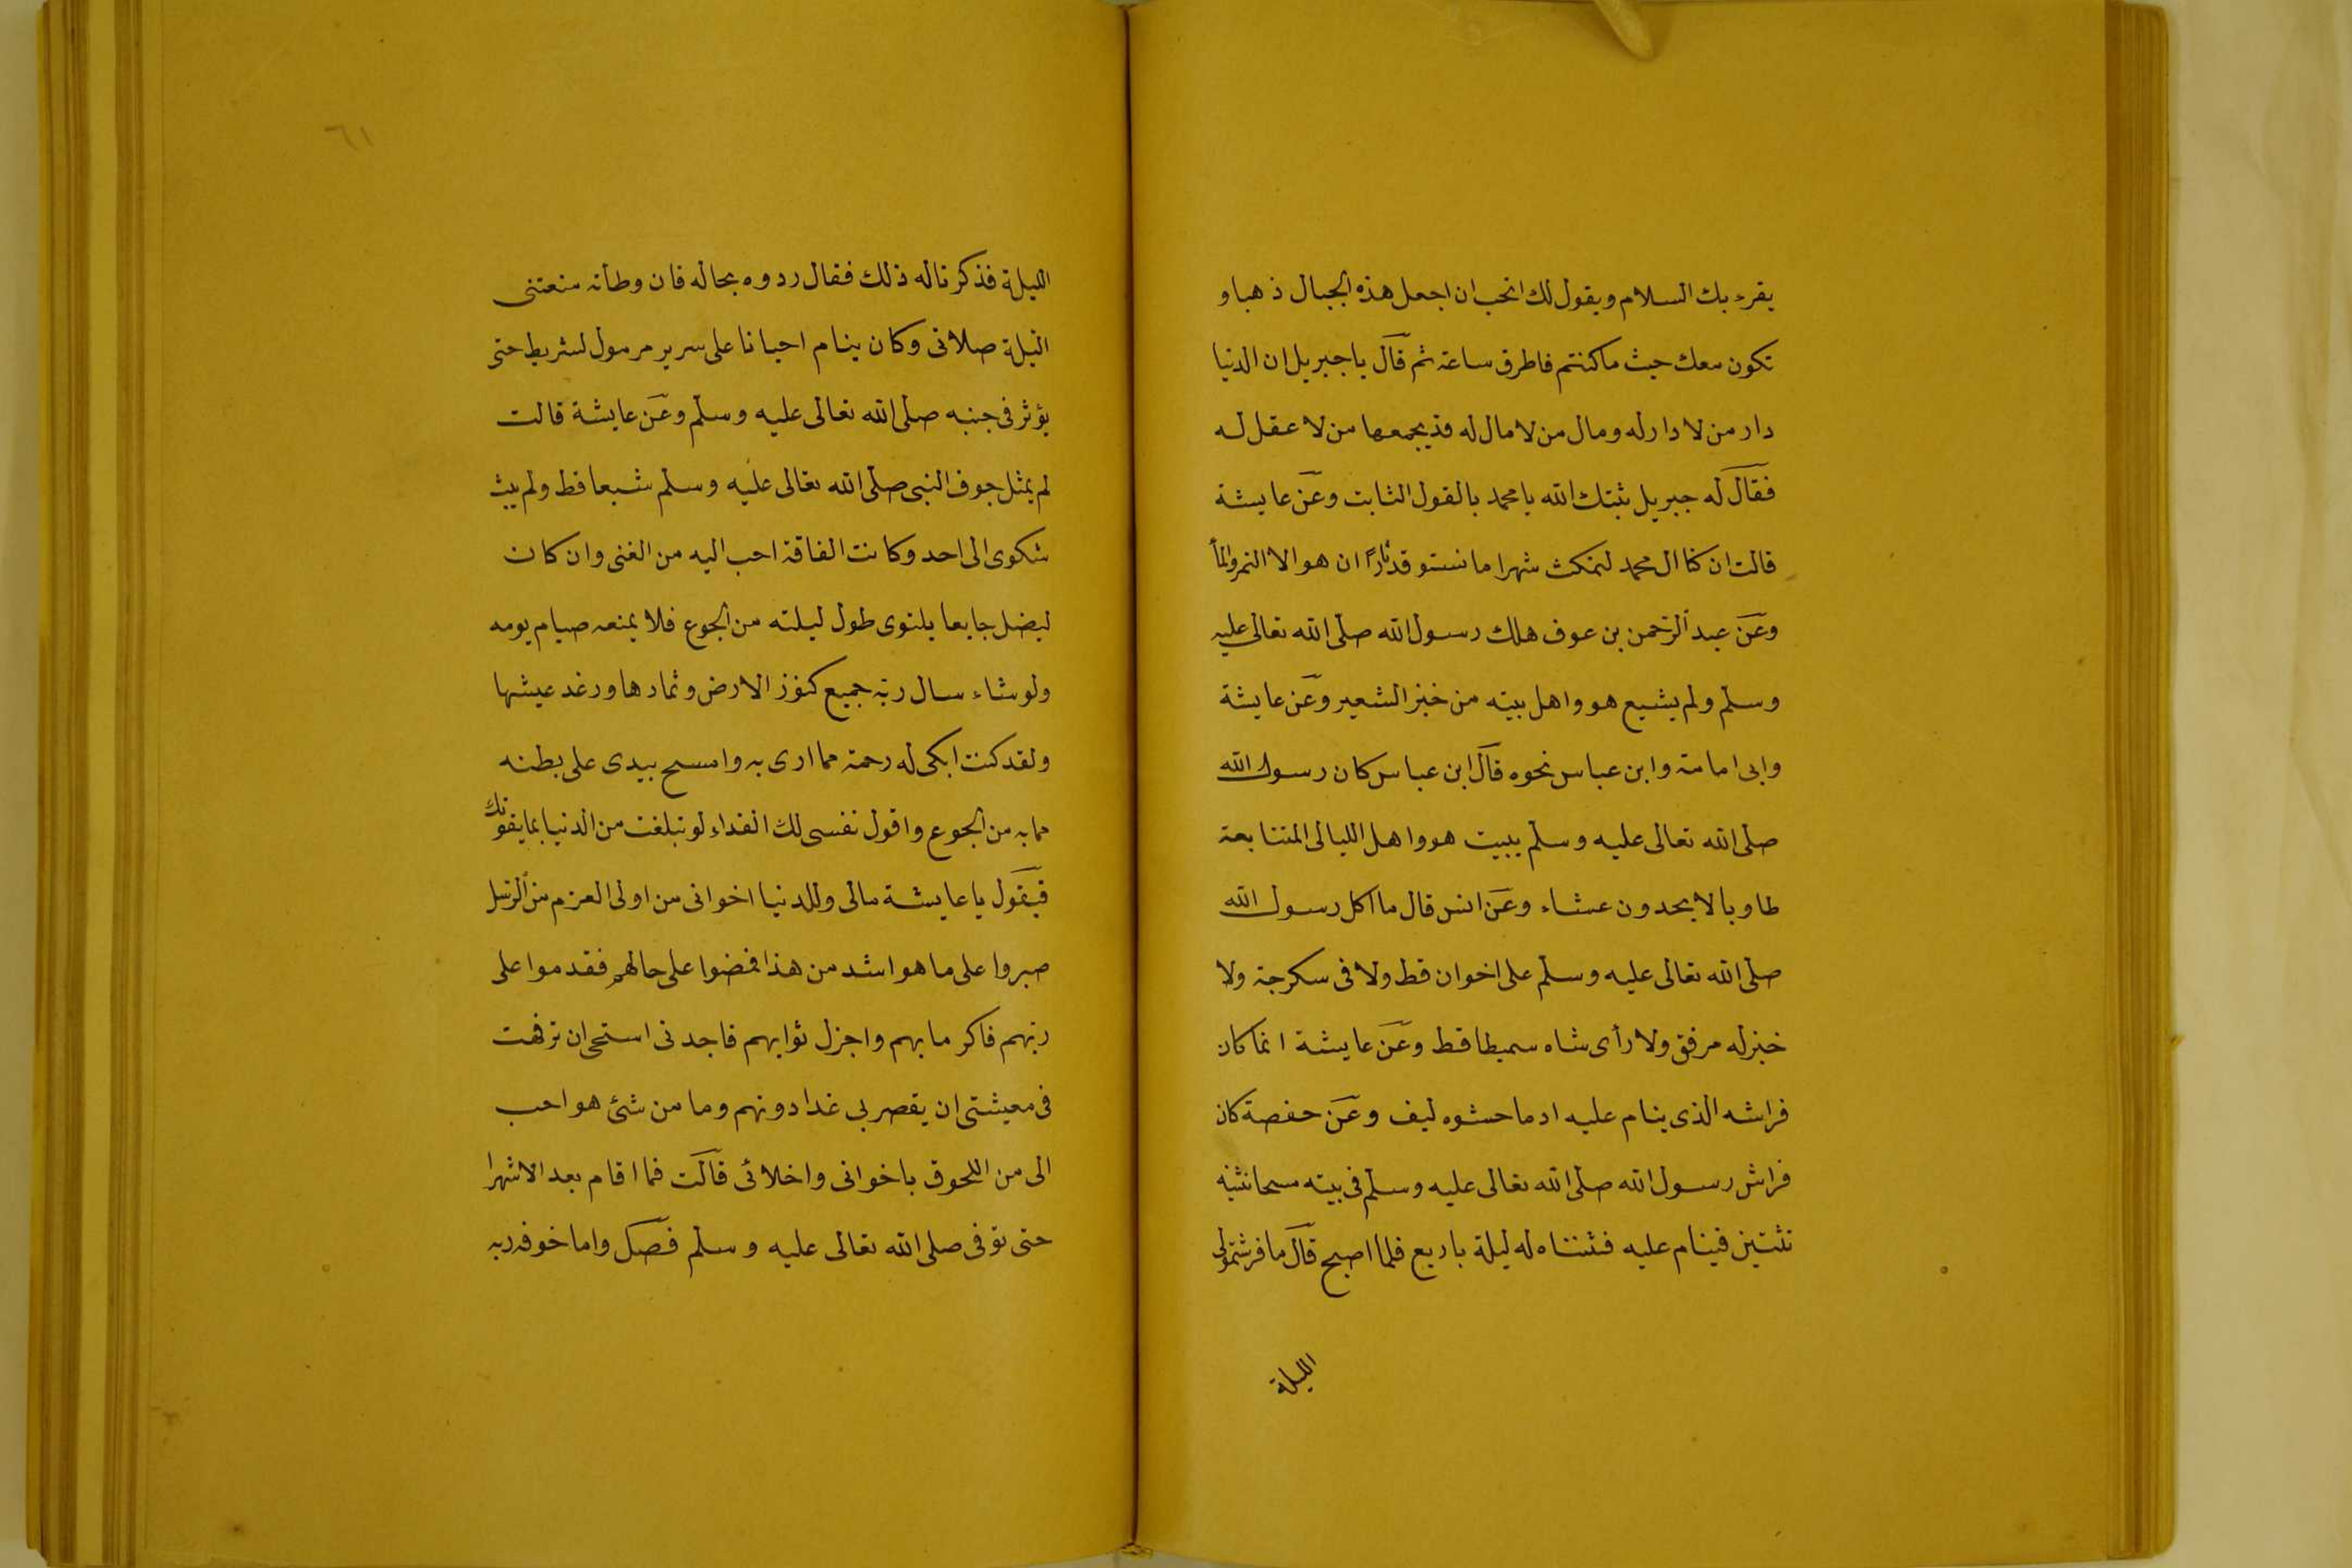 يقرءبك السلام ويقول لك اتحب ان اجعل هذه الجبال ذهبا و
تكون معك حيث ماكنتم فاطرق ساعة ثم قال ياجبريل ان الدنيا
دار من لا دارله ومال من لامال له قديجمعها من لا عقل له
فقال له جبريل ثبتك الله يامحمد بالقول الثابت وعن عايشة
قالت ان كنا ال محمد لنمكث شهرا مانستوقد نارًا ان هو الا التمر والمأ
وعن عبد الرحمن بن عوف هلك رسول الله صلى الله تعالى عليه
وسلم ولم يشبع هو واهل بيته من خبز الشعير وعن عايشة
وابى امامة وابن عباس نحوه قال ابن عباس كان رسول الله
صلى الله تعالى عليه وسلم يبيت هو واهل الليالى المتتابعة
طاويا لايحدون عشاء وعن انس قال ما اكل رسول الله
صلى الله تعالى عليه وسلم على اخوان قط ولا فى سكرجة ولا
خبزله مرفق ولا رأى شاه سميطا قط وعن عايشة انما كان
فراشه الذى ينام عليه ادما حشوه ليف وعن حفصة كان
فراش رسول الله صلى الله تعالى عليه وسلم فى بيته مسحا نثنيه
ثنتين فينام عليه فثنناه له ليلة باربع فلما اصبح قال ما فرشتمولى
الليلة
٦١
الليلة فذكرناله ذلك فقال ردوه بحاله فان وطأته منعتنى
الليلة صلاتى وكان ينام احيانا على سرير مرمول لشريط حتى
يؤثر فى جنبه صلى الله تعالى عليه وسلم وعن عايشة قالت
لم يمثل جوف النبى صلى الله تعالى عليه وسلم شبعا قط ولم يبث
شكوى الى احد وكانت الفاقة احب اليه من الغنى وان كان
ليضل جايعا يلتوى طول ليلته من الجوع فلا يمنعه صيام يومه
ولو شاء سال ربه جميع كنوز الارض وثمارها ورغد عيشها
ولقد كنت ابكى له رحمة مما ارى به وامسح بيدى على بطنه
مما به من الجوع واقول نفسى لك الفداء لو تبلغت من الدنيا بما يقوتك
فيقول يا عايشة مالى وللدنيا اخوانى من اولى العزم من الرسل
صبروا على ما هو اشد من هذا فمضوا على حالهم فقدموا على
ربهم فاكر مابهم واجزل ثوابهم فاجدنى استحى ان ترفهت
فى معيشتى ان يقصربى غدا دونهم وما من شئ هو احب
الى من اللحوق باخوانى واخلائى قالت فما اقام بعد الاشهرا
حتى توفى صلى الله تعالى عليه وسلم فصل واما خوفه ربه